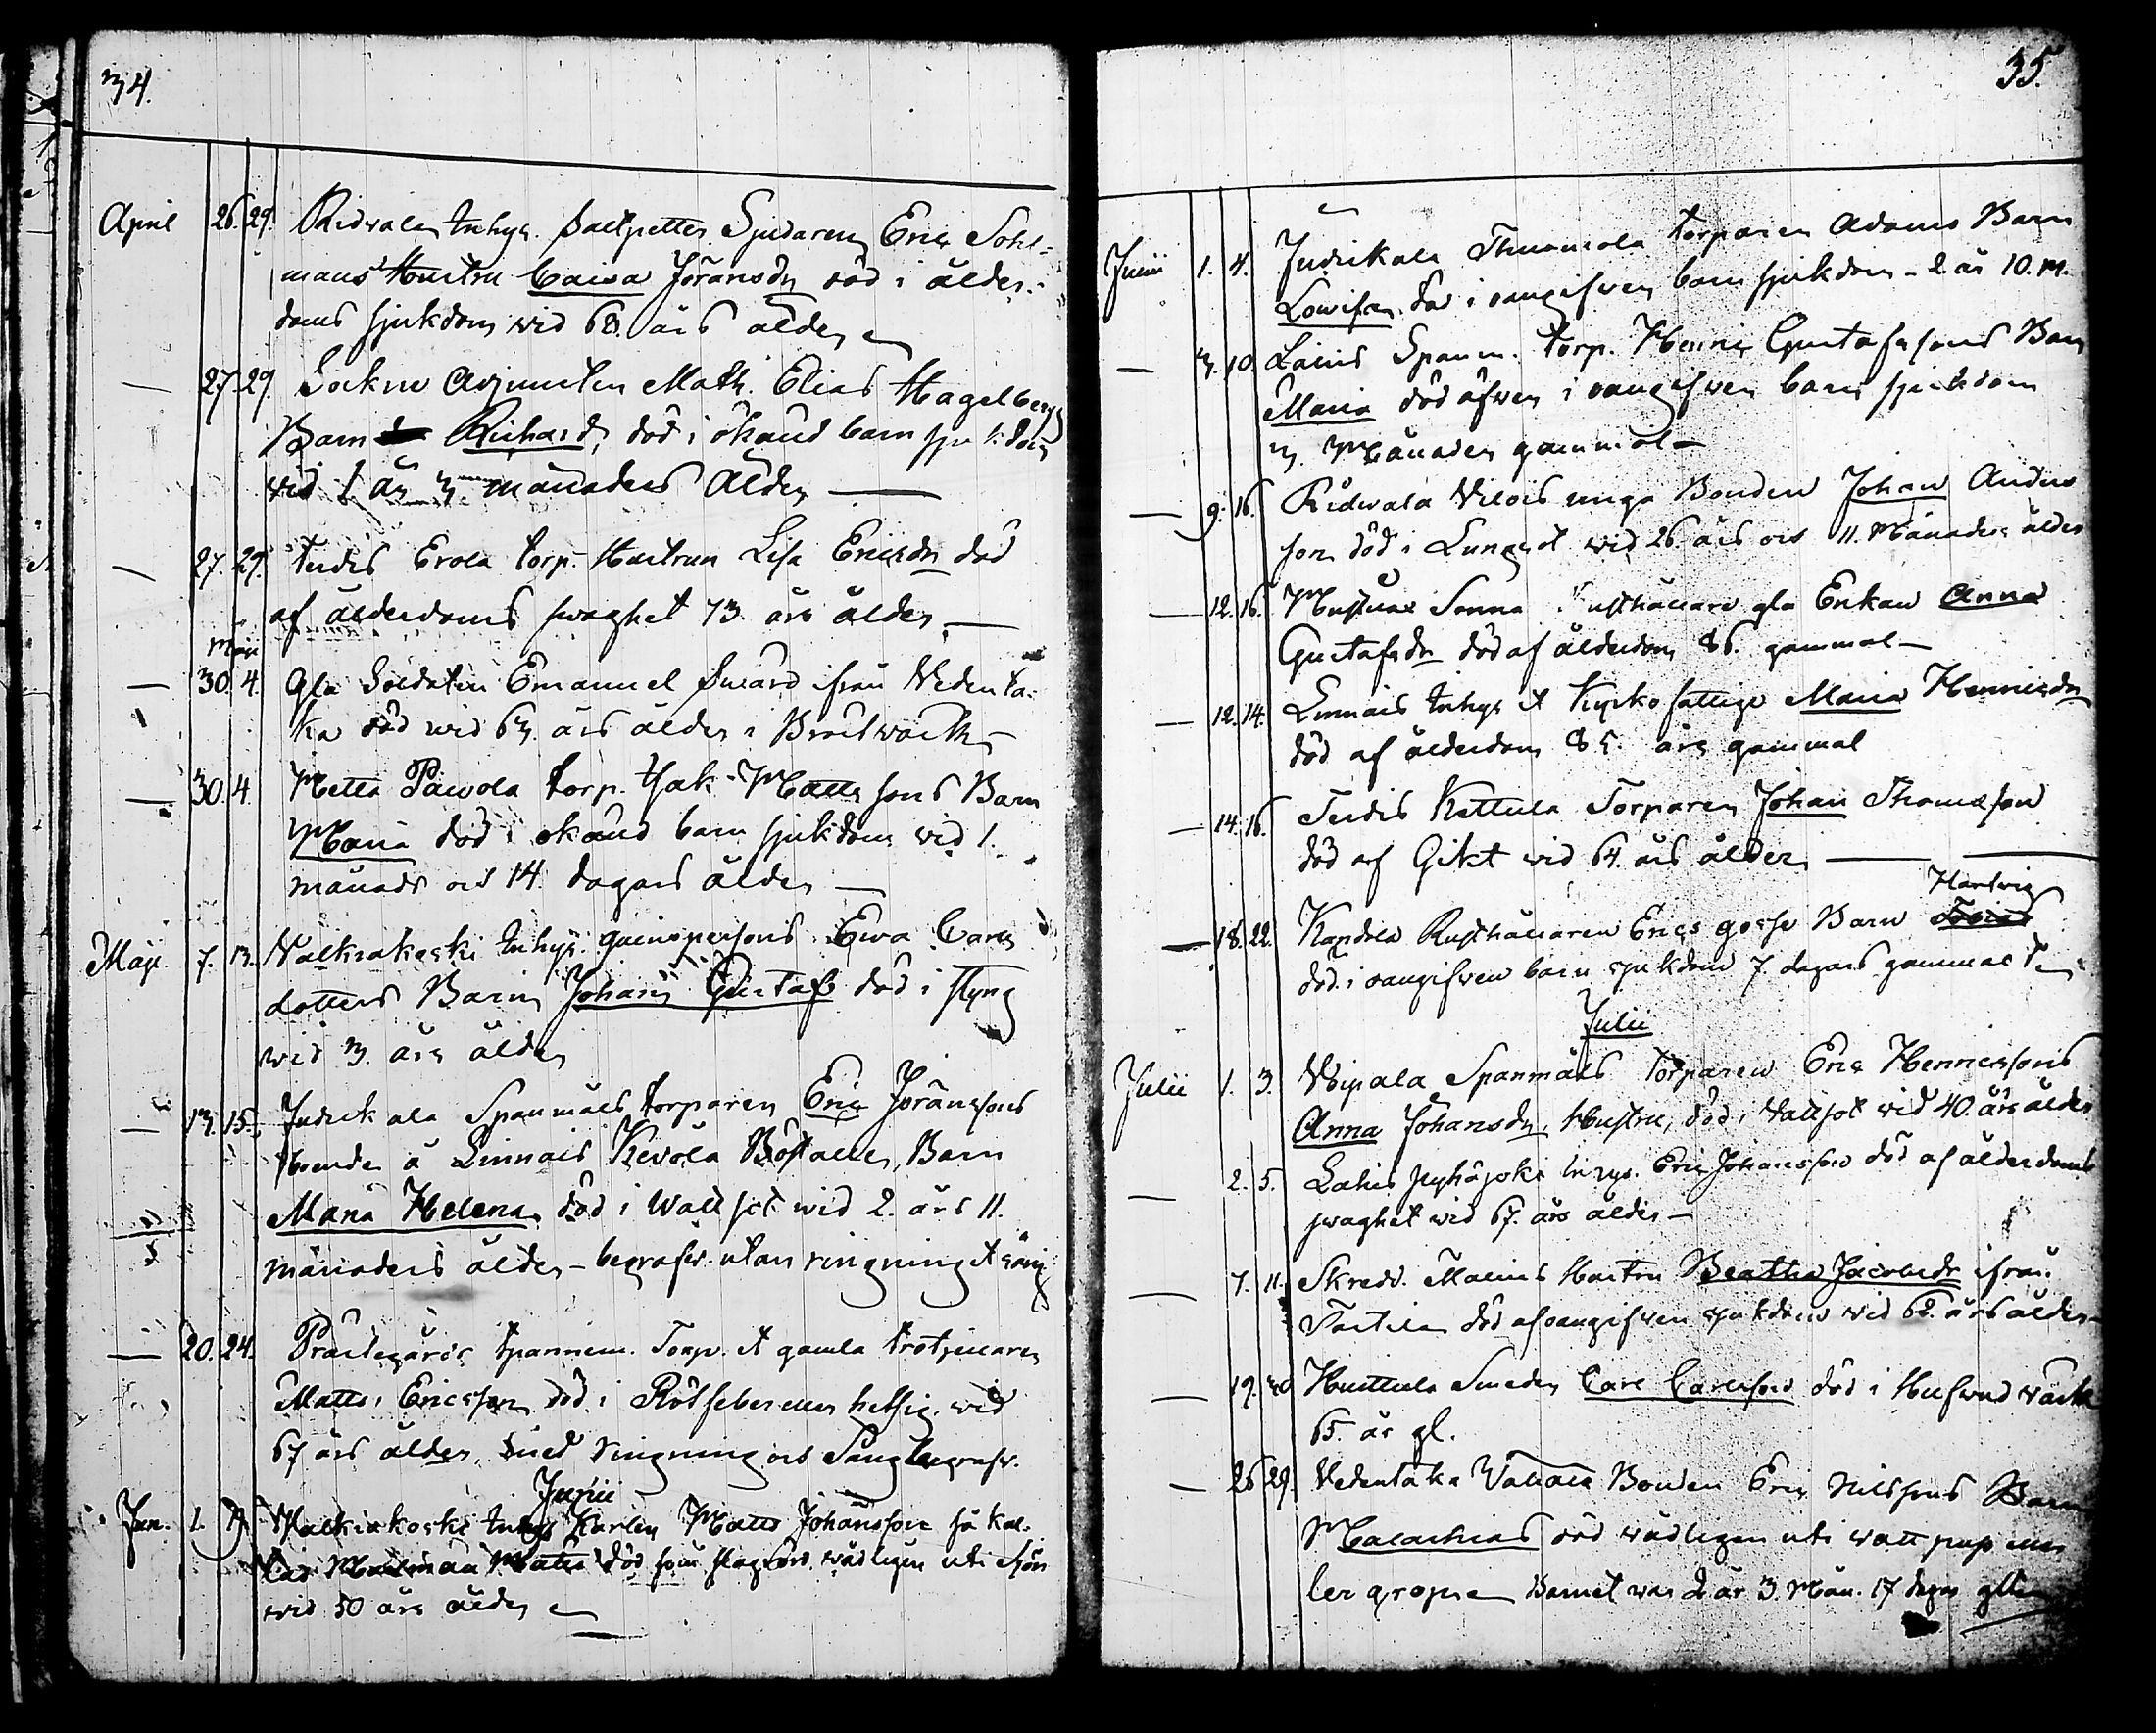 34.
April 26. 29. Ridvala Inhys. Saltpetter Sjudaren Eric Sohl-
mans Hustru Caisa Jöransdr död i ålder-
doms sjukdom wid 68. års ålder
— 27. 29. Sockne Adjuncten Math. Elias Hagelbergs
Barn Richard, död i okänd barn sjukdom
wid 1 år 3 månaders ålder —
— 27. 29. Erola torp. Hustrun Lisa Ericsdr död
af ålderdoms swaghet 73. års ålder —
Maji
— 30. 4. Gla Soldaten Emanuel Swärd ifrån Vedenta-
ka död wid 63. års ålder i Bröstwärk
— 30. 4. Metta Pawola torp. Matts sons Barn
Maria död i okänd barn sjukdom wid 1.
månads och 14. dagars ålder —
Maji 7. 13. Valkiakoski Inhys. qwinspersons Ewa Carls
dotters Barn Johan Gustaf död i styng
wid 3. års ålder
— 13. 15. Judickala Spanmåls torparen Eric Jöranssons
boende å Linnais Kevola Bostället, Barn
Maria Helena, död i Wattsot wid 2. års 11.
månaders ålder – begrafw. utan ringning et sång
— 20. 24. Prästegårds spannem. Torp. et gamla trotjenaren
Matts Ericsson död i Rötfeber wid
67 års ålder, med ringning och Sång begrafw.
Junii
Jun. 1. Valkiakoski Inhys Karlen Matts Johansson så kal-
lad Matts död som slagrörd wådligen uti sjön
wid 50 års ålder
35.
Junii 1. 4. Judickala Thuomola torparen Adams Barn
Lowisa. död i oangifwen barn sjukdom – 2. år 10. M.
— 3. 10. Lainis Spanm. torp. Henric Gustafssons Barn
Maria död äfwen i oangifwen barn sjukdom
3. Månader gammal —
— 9. 16. Ridvala Vilois unga Bonden Johan Anders
son död i Lungsot wid 26. års och 11. Månaders ålder
— 12. 16. Sonna Rusthållare gla Enkan Anna
Gustafsdr död af ålderdom 86. gammal —
— 12. 14. Linnais Inhys et Kyrko fattige Maria Henricsdr
död af ålderdom 85. års gammal
— 14. 16. Kettula Torparen Johan Thomasson
död af Gikt wid 64. års ålder —
Hartvig
— 18. 22. Kandola Rusthållaren Erics gosse Barn
död i oangifwen barn sjukdom 7. dagars gammal
Julii
Julii 1. 3. Voipala Spanmåls torparen Eric Henricssons
Anna Johansdr. Hustru, död i Wattsot wid 40. års ålder
— 2. 5. Lahis Inhys. Eric Johansson död af ålderdoms
swaghet wid 67. års ålder —
— 7. 11. Skredd. Malins Hustru Beatha Jacobsdr ifrån
död af oangifwen sjukdom wid 62. års ålder —
— 19. 20 Huittula Smeden Carl Carlsson död i Hufwud wärk
65. år gl.
— 26 29. Vedentaka Bonden Eric Nilssons Barn
Malachias död wådligen uti watt pup el-
ler grop Barnet war 2 år 3. Mån. 17 dagar